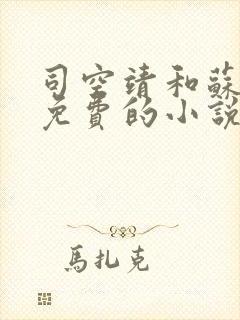 司空靖和蘇
免費的小說
馬扎克